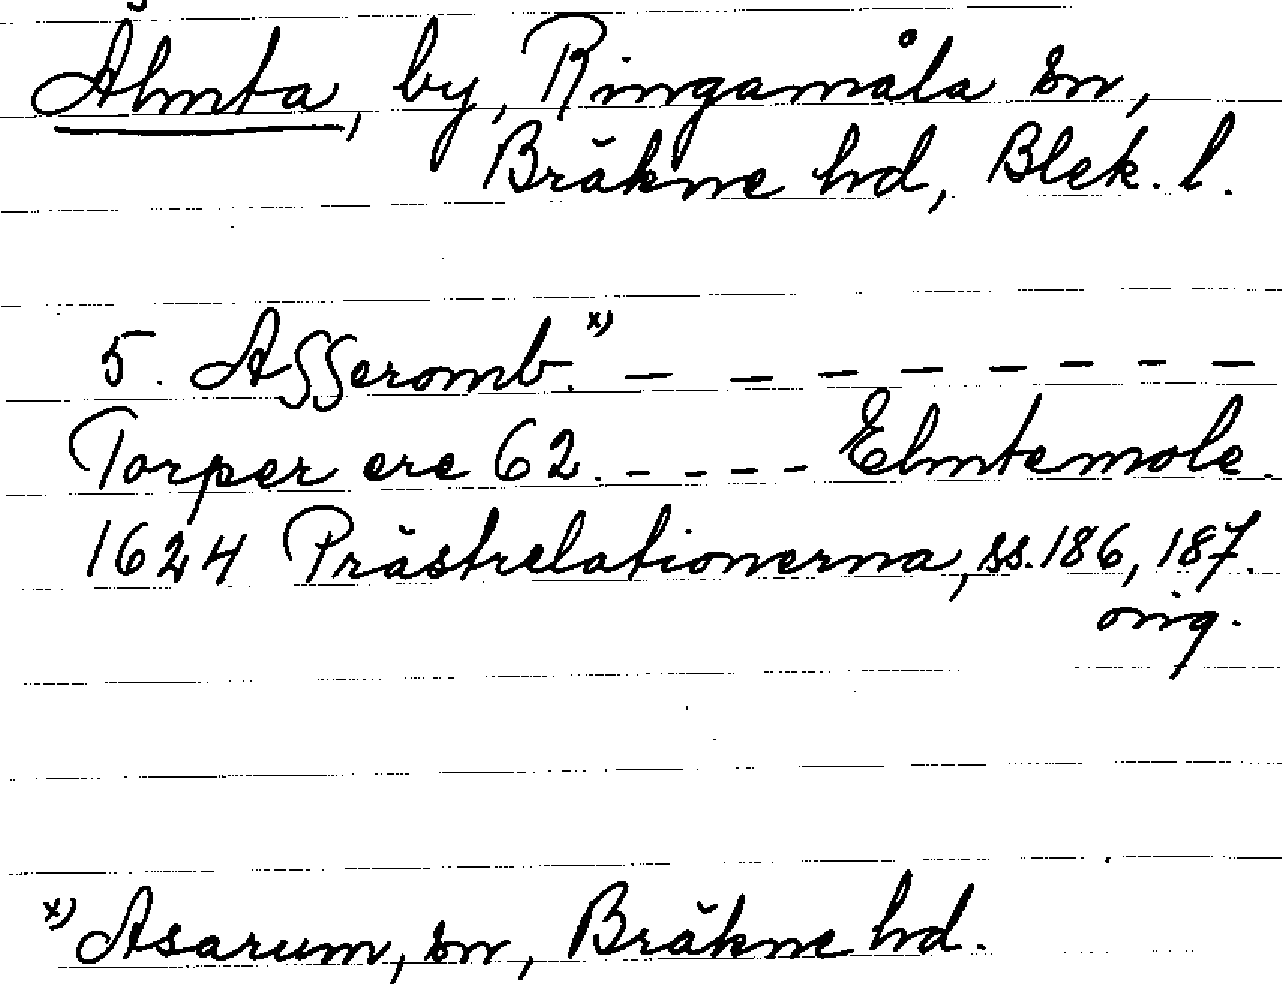 Älmta, by, Ringamåla sn,
Bräkne hd, Blek. l.
5. Asseromb.ˣ⁾ – – – – – – – –
Torper ere 62. – – – – Elmtemole.
1624 Prästrelationerna, ss. 186, 187.
orig.
ˣ⁾ Asarum, sn, Bräkne hd.